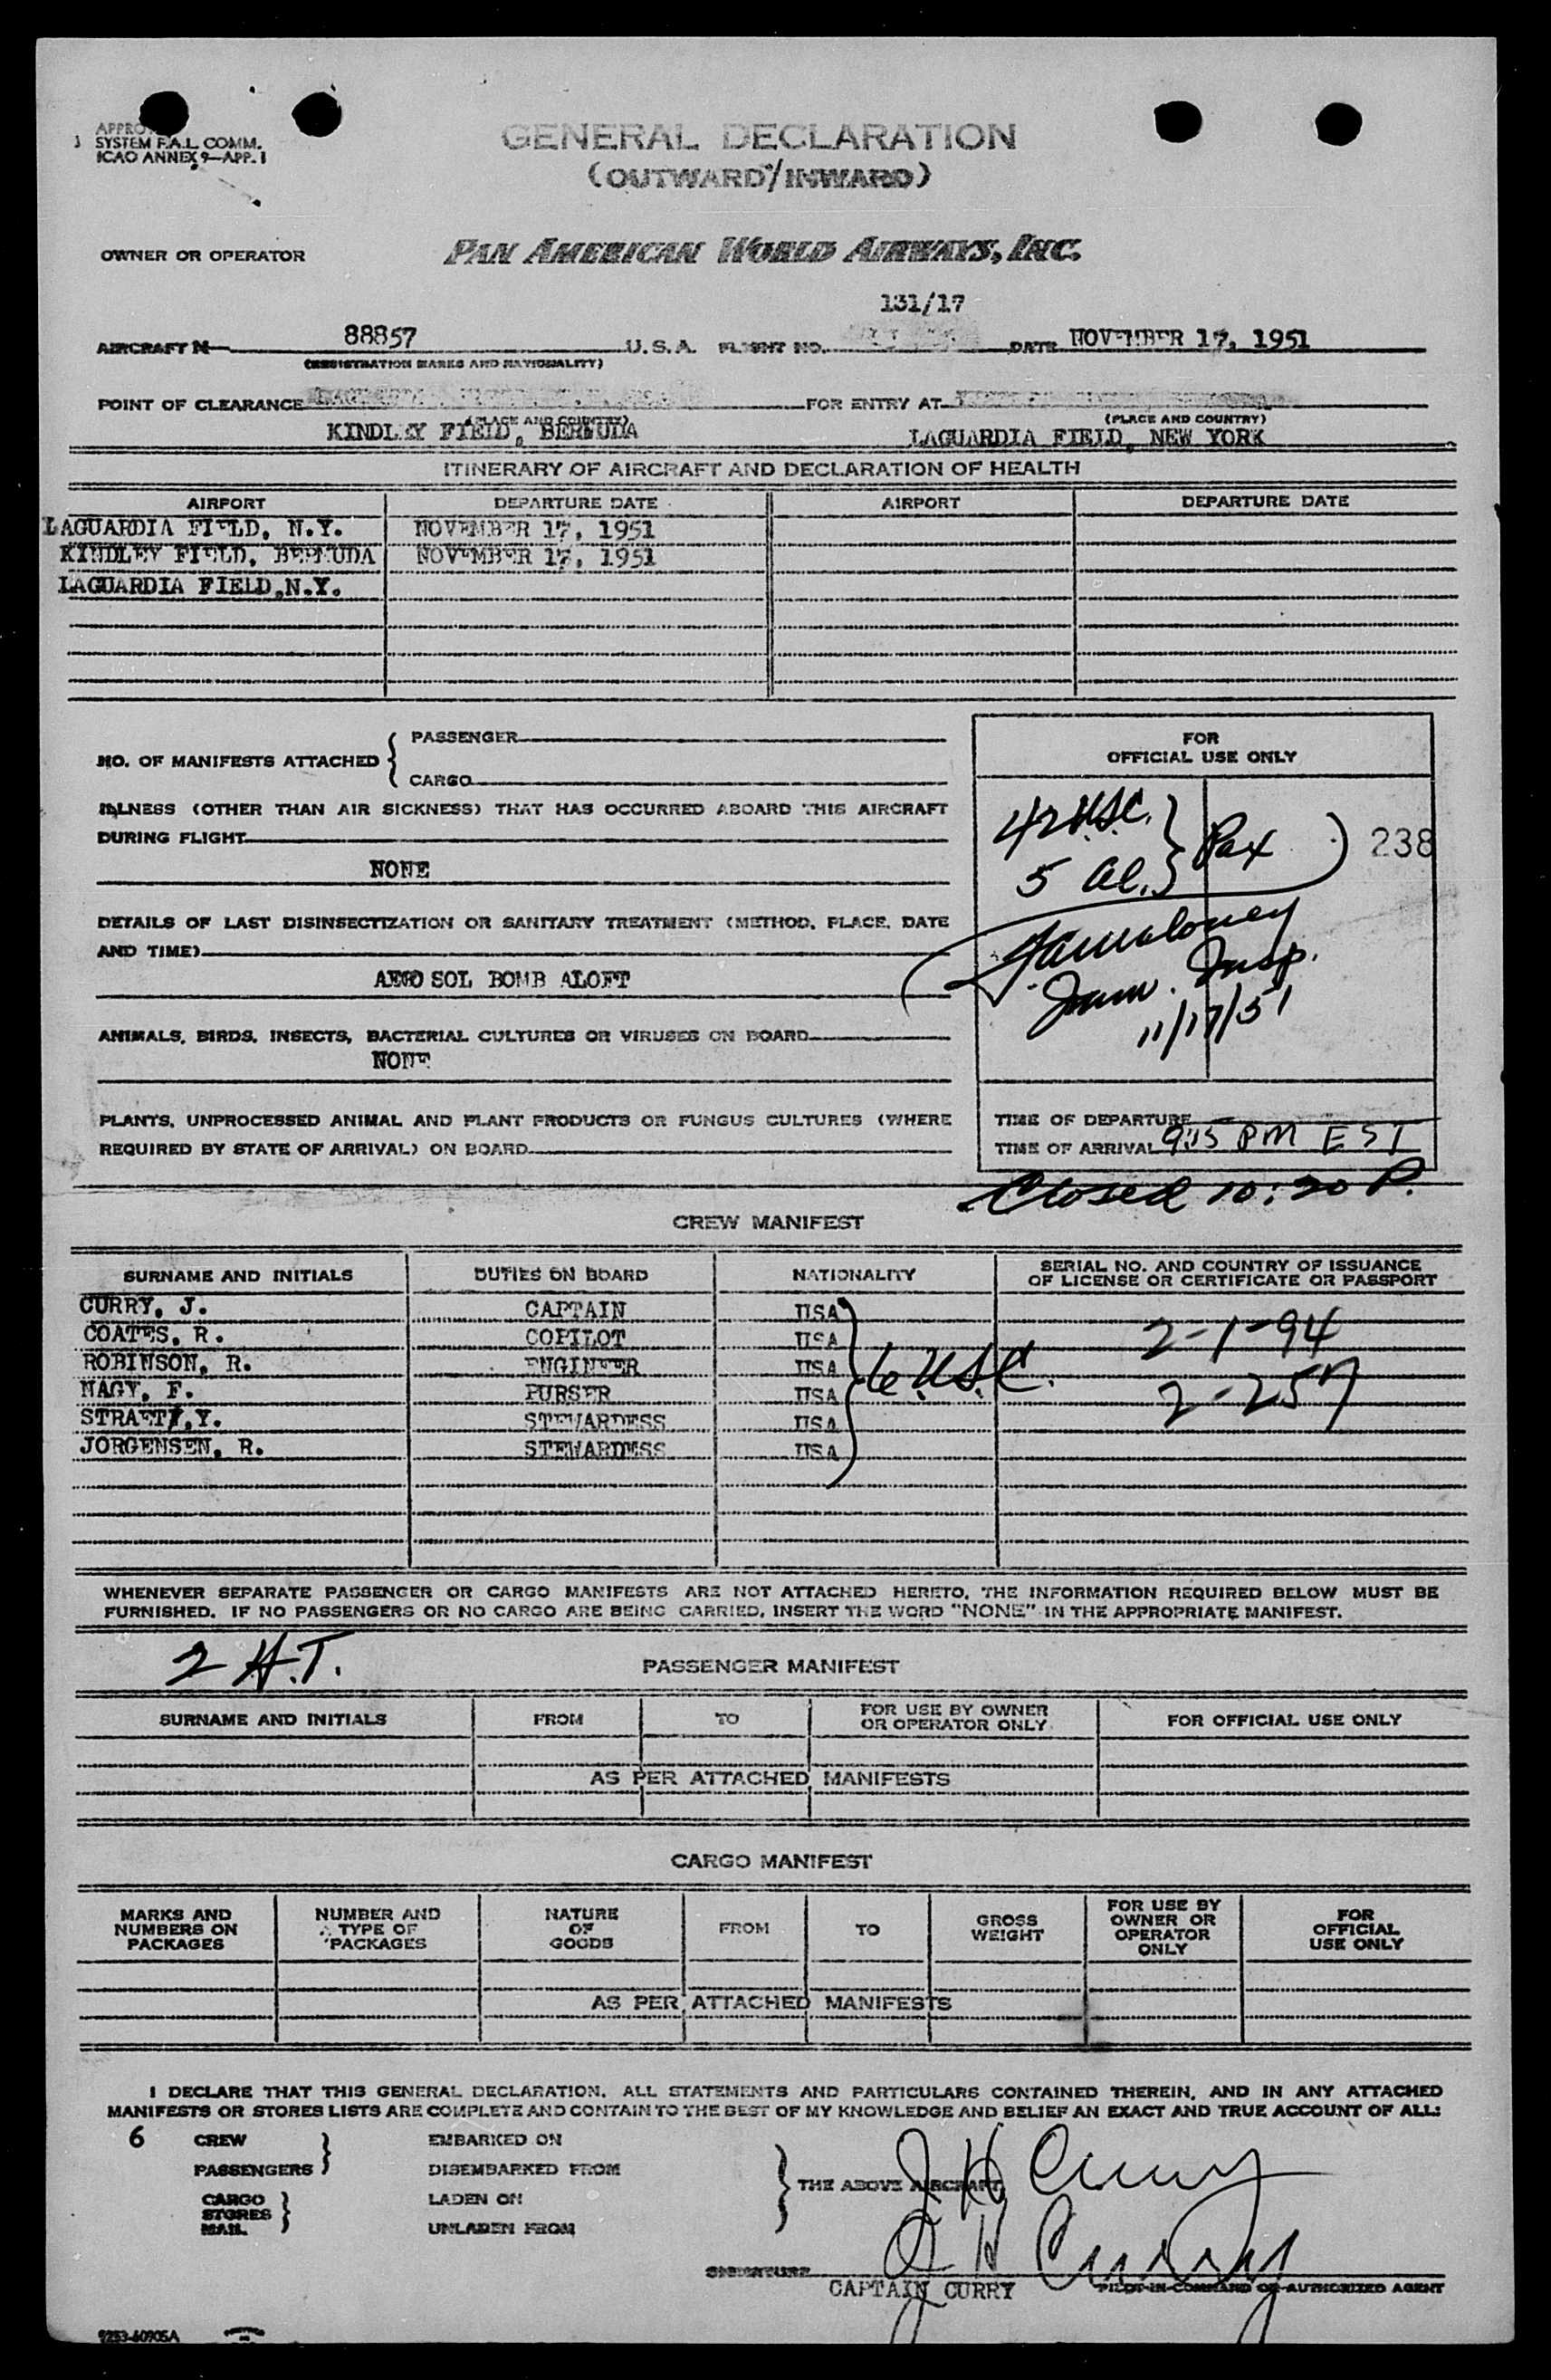 SYSTEM F.A.L. COMM.
ICAO ANNEX 9—APP. 1
GENERAL DECLARATION
(OUTWARD/INWARD)
OWNER OR OPERATOR PAN AMERICAN WORLD AIRWAYS, INC.
131/17
AIRCRAFT N 88857 U.S.A. FLIGHT NO. DATE NOVEMBER 17, 1951
(REGISTRATION MARKS AND NATIONALITY)
POINT OF CLEARANCE FOR ENTRY AT
(PLACE AND COUNTRY) (PLACE AND COUNTRY)
KINDLEY FIELD, BERMUDA LAGUARDIA FIELD, NEW YORK
ITINERARY OF AIRCRAFT AND DECLARATION OF HEALTH
AIRPORT DEPARTURE DATE AIRPORT DEPARTURE DATE
LAGUARDIA FIELD, N.Y. NOVEMBER 17, 1951
KINDLEY FIELD, BERMUDA NOVEMBER 17, 1951
LAGUARDIA FIELD,N.Y.
NO. OF MANIFESTS ATTACHED { PASSENGER
CARGO
ILLNESS (OTHER THAN AIR SICKNESS) THAT HAS OCCURRED ABOARD THIS AIRCRAFT
DURING FLIGHT
NONE
DETAILS OF LAST DISINSECTIZATION OR SANITARY TREATMENT (METHOD, PLACE, DATE
AND TIME)
AERO SOL BOMB ALOFT
ANIMALS, BIRDS, INSECTS, BACTERIAL CULTURES OR VIRUSES ON BOARD
NONE
PLANTS, UNPROCESSED ANIMAL AND PLANT PRODUCTS OR FUNGUS CULTURES (WHERE
REQUIRED BY STATE OF ARRIVAL) ON BOARD
FOR
OFFICIAL USE ONLY
42 U.S.C. } Pax
5 al.
238
Imm. Insp.
11/17/51
TIME OF DEPARTURE
TIME OF ARRIVAL 9:15 PM EST
Closed 10:20 P.
CREW MANIFEST
SURNAME AND INITIALS DUTIES ON BOARD NATIONALITY SERIAL NO. AND COUNTRY OF ISSUANCE
OF LICENSE OR CERTIFICATE OR PASSPORT
CURRY, J. CAPTAIN USA
COATES, R. COPILOT USA 2-1-94
ROBINSON, R. ENGINEER USA 6 U.S.C.
NAGY, F. PURSER USA 2-257
Y. STEWARDESS USA
JORGENSEN, R. STEWARDESS USA
WHENEVER SEPARATE PASSENGER OR CARGO MANIFESTS ARE NOT ATTACHED HERETO, THE INFORMATION REQUIRED BELOW MUST BE
FURNISHED. IF NO PASSENGERS OR NO CARGO ARE BEING CARRIED, INSERT THE WORD "NONE" IN THE APPROPRIATE MANIFEST.
2 H.T. PASSENGER MANIFEST
SURNAME AND INITIALS FROM TO FOR USE BY OWNER
OR OPERATOR ONLY FOR OFFICIAL USE ONLY
AS PER ATTACHED MANIFESTS
CARGO MANIFEST
MARKS AND
NUMBERS ON
PACKAGES
NUMBER AND
TYPE OF
PACKAGES
NATURE
OF
GOODS
FROM
TO
GROSS
WEIGHT
FOR USE BY
OWNER OR
OPERATOR
ONLY
FOR
OFFICIAL
USE ONLY
AS PER ATTACHED MANIFESTS
I DECLARE THAT THIS GENERAL DECLARATION, ALL STATEMENTS AND PARTICULARS CONTAINED THEREIN, AND IN ANY ATTACHED
MANIFESTS OR STORES LISTS ARE COMPLETE AND CONTAIN TO THE BEST OF MY KNOWLEDGE AND BELIEF AN EXACT AND TRUE ACCOUNT OF ALL:
6 CREW } EMBARKED ON
PASSENGERS DISEMBARKED FROM } THE ABOVE AIRCRAFT J H Curry
CARGO
STORES } LADEN ON
MAIL UNLADEN FROM
SIGNATURE J H Curry
CAPTAIN CURRY PILOT-IN-COMMAND OR AUTHORIZED AGENT
9253-60905A